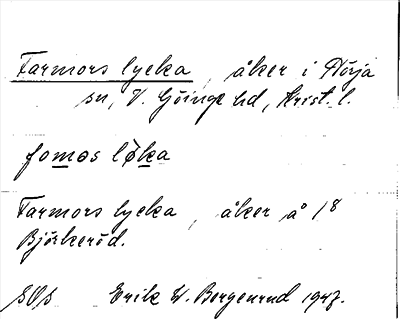 Farmors lycka, åker i Nörja
sn, V. Göinge hd, Krist. l.
fomos lo̊ka
Farmors lycka, åker å 1/8
Björkeröd.
SOS Erik W. Bergenrud 1947.